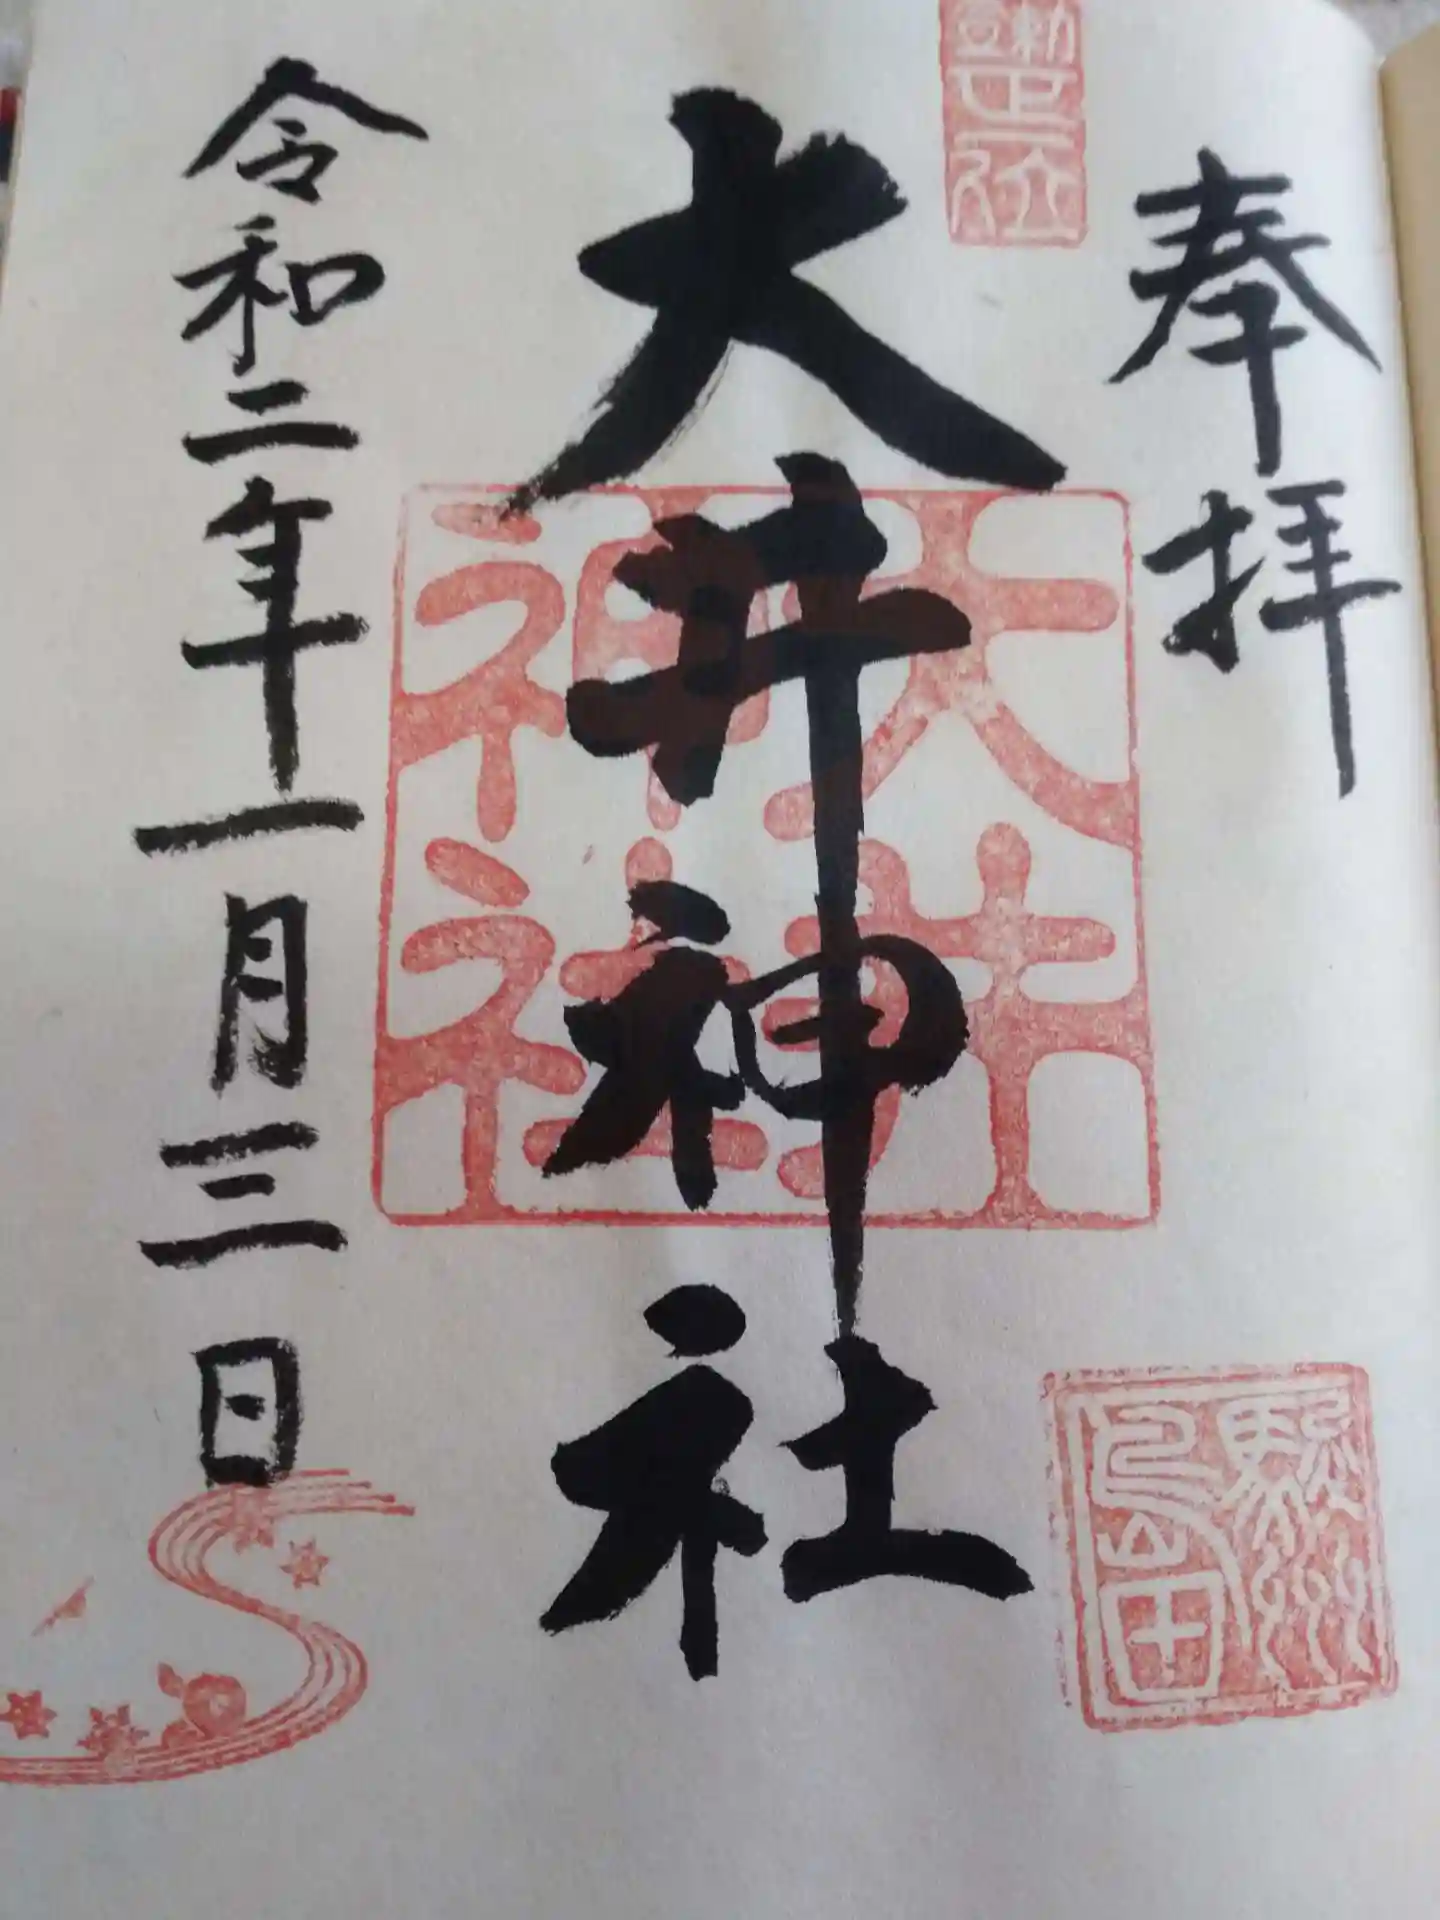 奉拝
大井神社
大井
神社
駿州
島田
令和二年一月三日